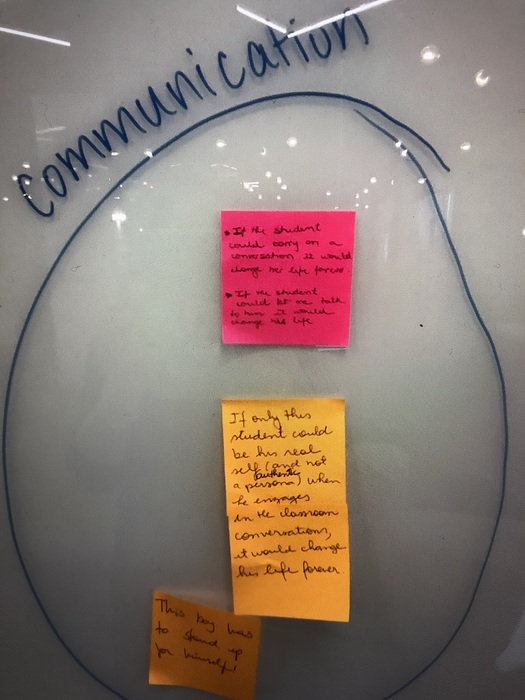 communication
• If the student
could carry on a
conversation it would
change her life forever.
• If the student
could let me talk
to him it would
change his life
If only this
student could
be his real
self (and not
authentic
a persona) when
he engages
in the classroom
conversations,
it would change
his life forever.
This boy has
to stand up
for himself!